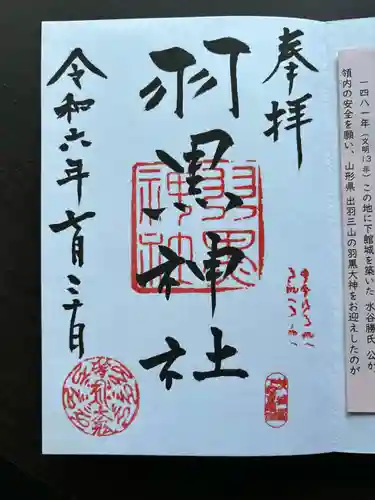 一四八一年（文明13年）この地に下館城を築いた 水谷勝氏 公が、
領内の安全を願い、山形県 出羽三山の羽黒大神をお迎えしたのが
奉拝
羽黒神社
羽黒神社
令和六年六月三十日